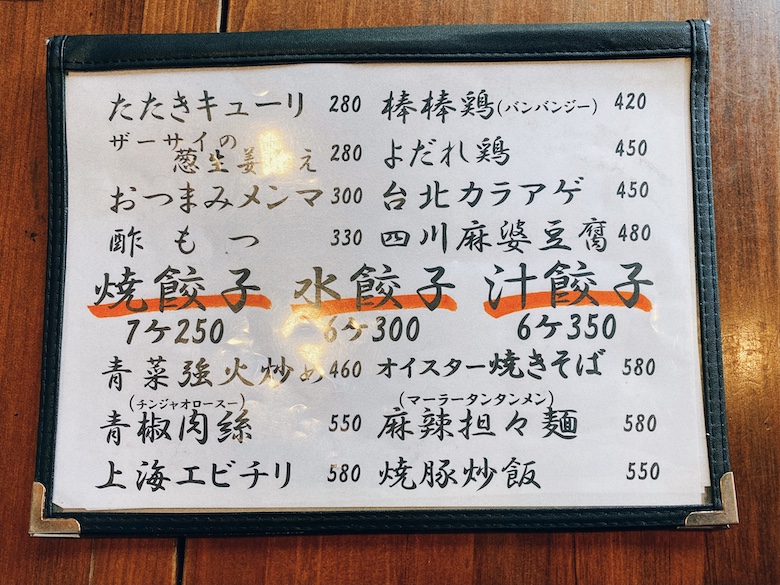 たたきキューリ 280
棒棒鶏(バンバンジー) 420
ザーサイの
葱生姜和え 280
よだれ鶏 450
おつまみメンマ 300
台北カラアゲ 450
酢もつ 330
四川麻婆豆腐 480
焼餃子 水餃子 汁餃子
7ケ250 6ケ300 6ケ350
青菜強火炒め 460
オイスター焼きそば 580
(チンジャオロースー)
青椒肉絲 550
(マーラータンタンメン)
麻辣担々麺 580
上海エビチリ 580
焼豚炒飯 550